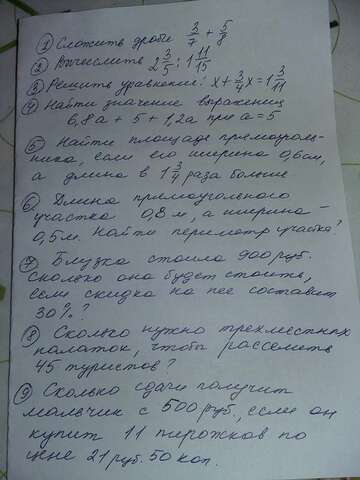 ① Сложить дроби 3/7 + 5/8
② Вычислить 2 3/5 : 1 11/15
③ Решить уравнение: x + 3/4 x = 1 3/11
④ Найти значение выражения
6,8a + 5 + 1,2a при a = 5
⑤ Найти площадь прямоуголь-
ника, если его ширина 0,6 см,
а длина в 1 3/4 раза больше.
⑥ Длина прямоугольного
участка 0,8 м, а ширина –
0,5 м. Найти периметр участка?
⑦ Блузка стоила 900 руб.
Сколько она будет стоить,
если скидка на нее составит
30%?
⑧ Сколько нужно трехместных
палаток, чтобы расселить
45 туристов?
⑨ Сколько сдачи получит
мальчик с 500 руб., если он
купит 11 пирожков по
цене 21 руб. 50 коп.